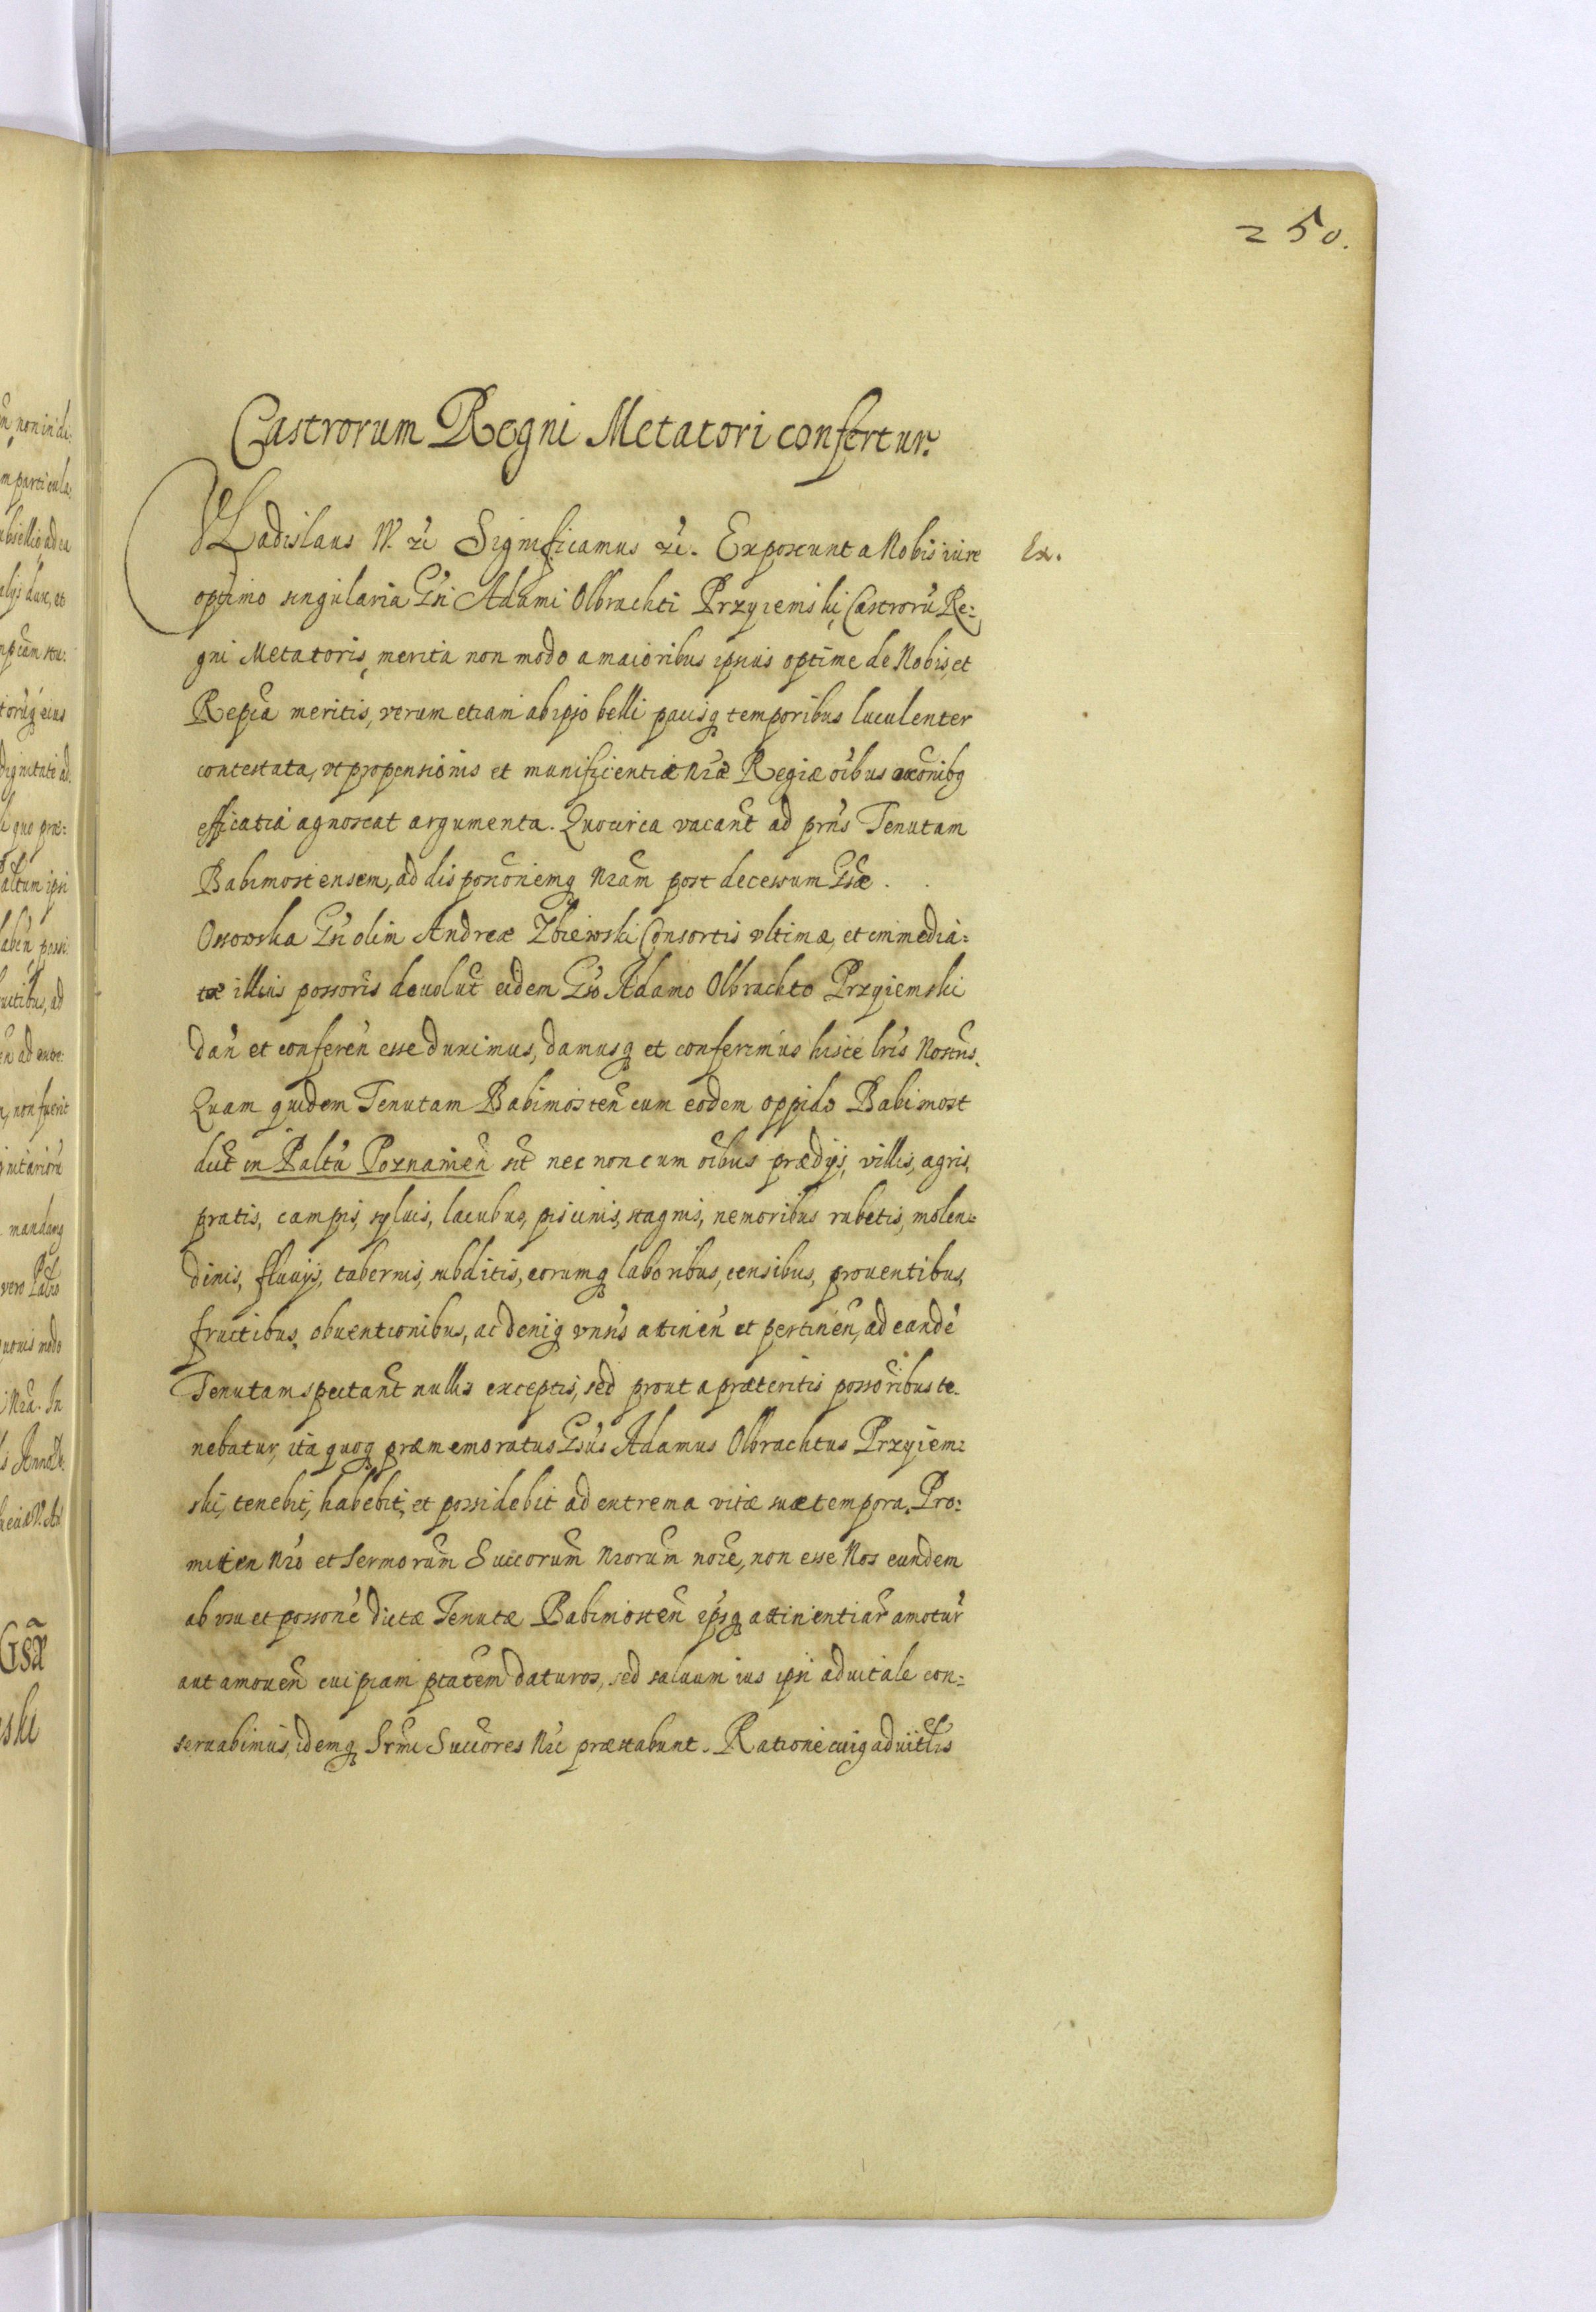 250.
Castrorum Regni Metatori confertur.
Vladislaus IV. zc Significamus zc. Exposcunt a Nobis iure
Ex.
optimo singularia Gsi Adami Olbrachti Przyiemski, Castrorũ Re:
gni Metatoris, merita non modo a maioribus ipsius optime de Nobis, et
Repca meritis, verum etiam ab ipso belli pacisq temporibus luculenter
contestata, vt propensionis et munificentiæ Nræ Regiæ oibus
efficatia agnoscat argumenta. Quocirca vacant ad prns Tenutam
Babimostensem, ad dispononemq Nram post decessum Gsæ . .
Ossowska Gsi olim Andreæ Zbiewski Consortis vltimæ, et immedia:
tæ illius possoris deuolut eidem Gso Adamo Olbrachto Przyiemski
dan et conferen esse duximus, damusq et conferimus hisce lris Nostris.
Quam quidem Tenutam Babimosten cum eodem oppido Babimost
dict in Paltu Poznanien sit nec non cum oibus prædijs, villis, agris,
pratis, campis, syluis, lacubus, piscinis, stagnis, nemoribus rubetis, molen:
dinis, fluuijs, tabernis, subditis, eorumq laboribus, censibus, prouentibus,
fructibus, obuentionibus, ac deniq vnis attinen et pertinen, ad eandẽ
Tenutam spectant nullis exceptis, sed prout a præteritis possoribus te.
nebatur, ita quoq præmemoratus Gsus Adamus Olbrachtus Przyiem:
ski, tenebit, habebit, et possidebit ad extrema vitæ suæ tempora. Pro:
mitten Nro et Sermorum Succorum Nrorum noie, non esse Nos eundem
ab vsu et possone dictæ Tenutæ Babimosten ipsq attinentiar amotur
aut amouen cuipiam ptatem daturos, sed saluum ius ipsi aduitale con:
seruabimus, idemq Srmi Succores Nri præstabunt. Ratione cuiq aduitlis